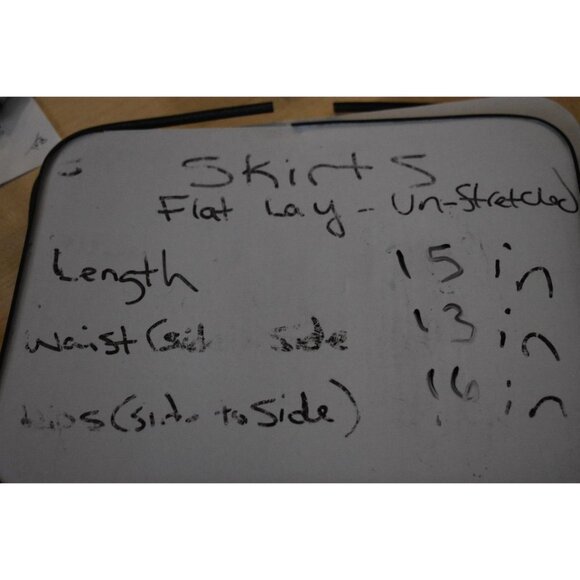 Skirts
Flat Lay - Un-Stretched
Length 15 in
Waist (side side 13 in
Hips (side to Side) 16 in